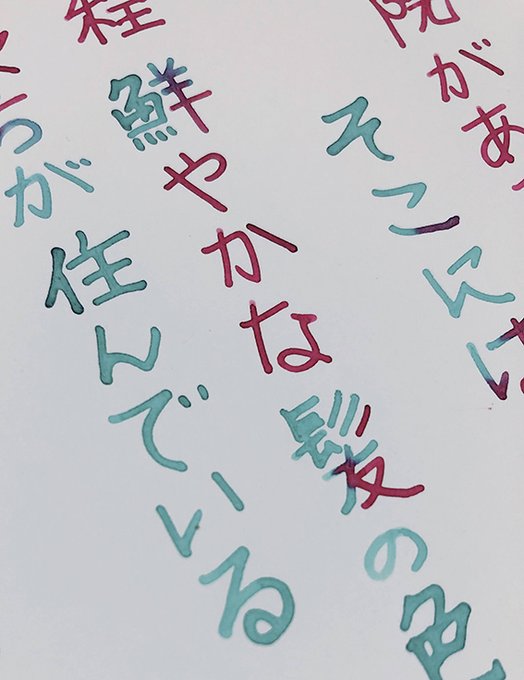 院があ
そこには
程鮮やかな髪の色
つが住んでいる